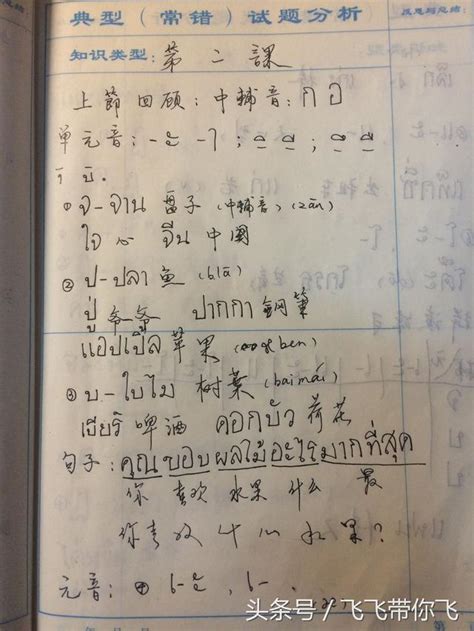 典型（常错）试题分析
知识类型：第二課
上節回顾：中輔音：ก อ
单元音：-ะ -า ; -ิ -ี ; -ึ -ื
① จ-จาน 盘子（中輔音）(zān)
ใจ 心 จีน 中國
② ป-ปลา 鱼 (blā)
ปู่ 爷爷 ปากกา 钢筆
แอปเปิล 苹果
③ บ-ใบไม้ 树葉 (baimái)
เบียร์ 啤酒 ดอกบัว 荷花
句子：คุณชอบผลไม้อะไรมากที่สุด
你 喜欢 水果 什么 最
你喜欢什么水果？
元音：
头条号 / 飞飞带你飞